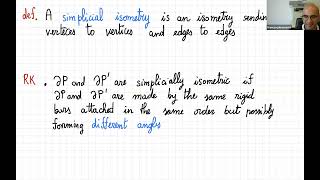 def. A simplicial isometry is an isometry sending
vertices to vertices and edges to edges
RK. ∂P and ∂P' are simplicially isometric if
∂P and ∂P' are made by the same rigid
bars attached in the same order but possibly
forming different angles